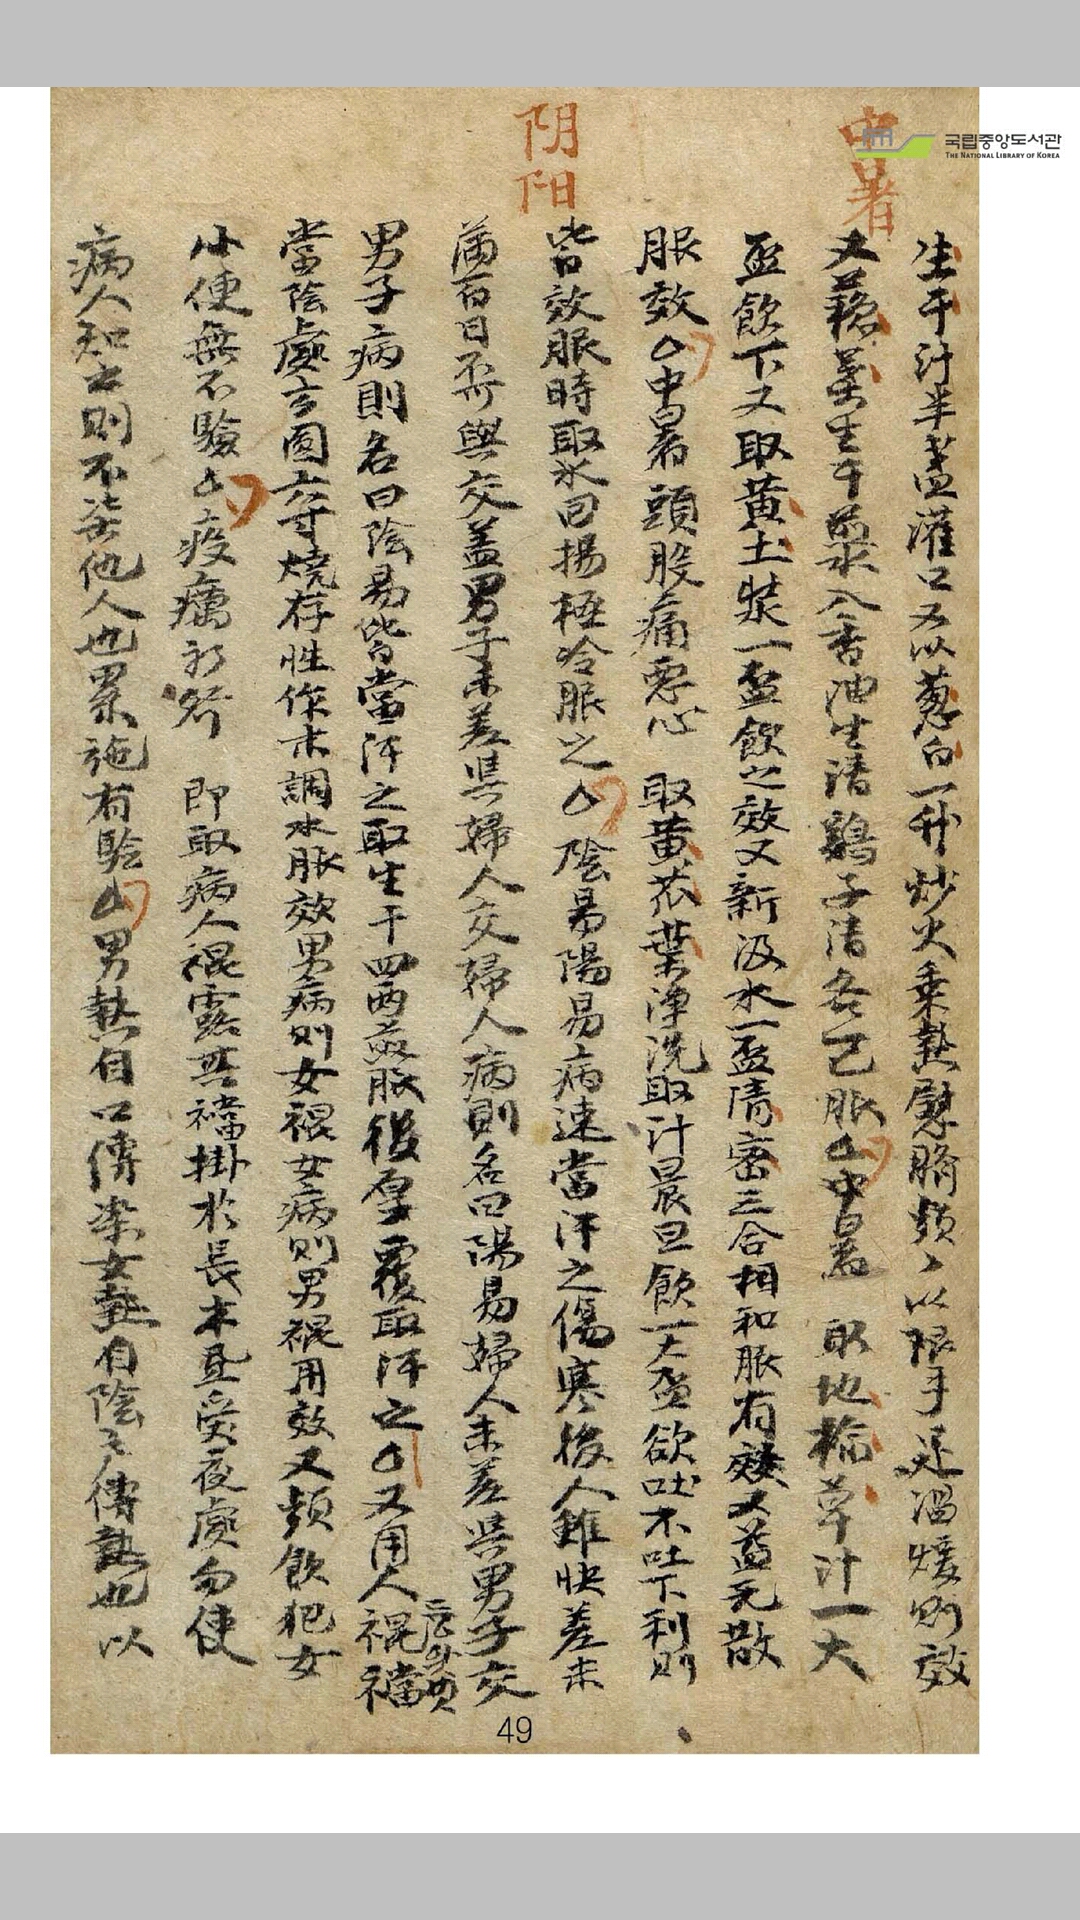 中暑
阴阳
국립중앙도서관
THE NATIONAL LIBRARY OF KOREA
生干汁半盞灌口又以葱白一升炒火乘熱慰臍頻〻以限手足温煖則效
又藕葉生干煎水入香油生清鷄子清各已服△中暑 取地楡草汁一大
盃飮下又取黃土漿一盃飮之效又新汲水一盃淸密三合相和服有效又益元散
服效△中暑頭股痛惡心 取黃苽葉淨洗取汁晨旦飮一大盃欲吐不吐下利則
皆效服時取水囙揚極冷服之△陰易陽易病速當汗之傷寒後人雖快差未
滿百日不可與交盖男子未差与婦人交婦人病則名曰陽易婦人未差与男子交
男子病則名曰陰易皆當汗之取生干四兩煎服後厚覆取汗之△又用人裩襠
當陰處方圓六寸燒存性作末調水服效男病則女裩女病則男裩用效又頻飮犯女
小便無不驗△疫癘初行 即取病人裩露去襠掛於長木且受夜處勿使
病人知之則不染他人也累施有驗△男熱自口傳染女熱自陰之傳熱也以
49